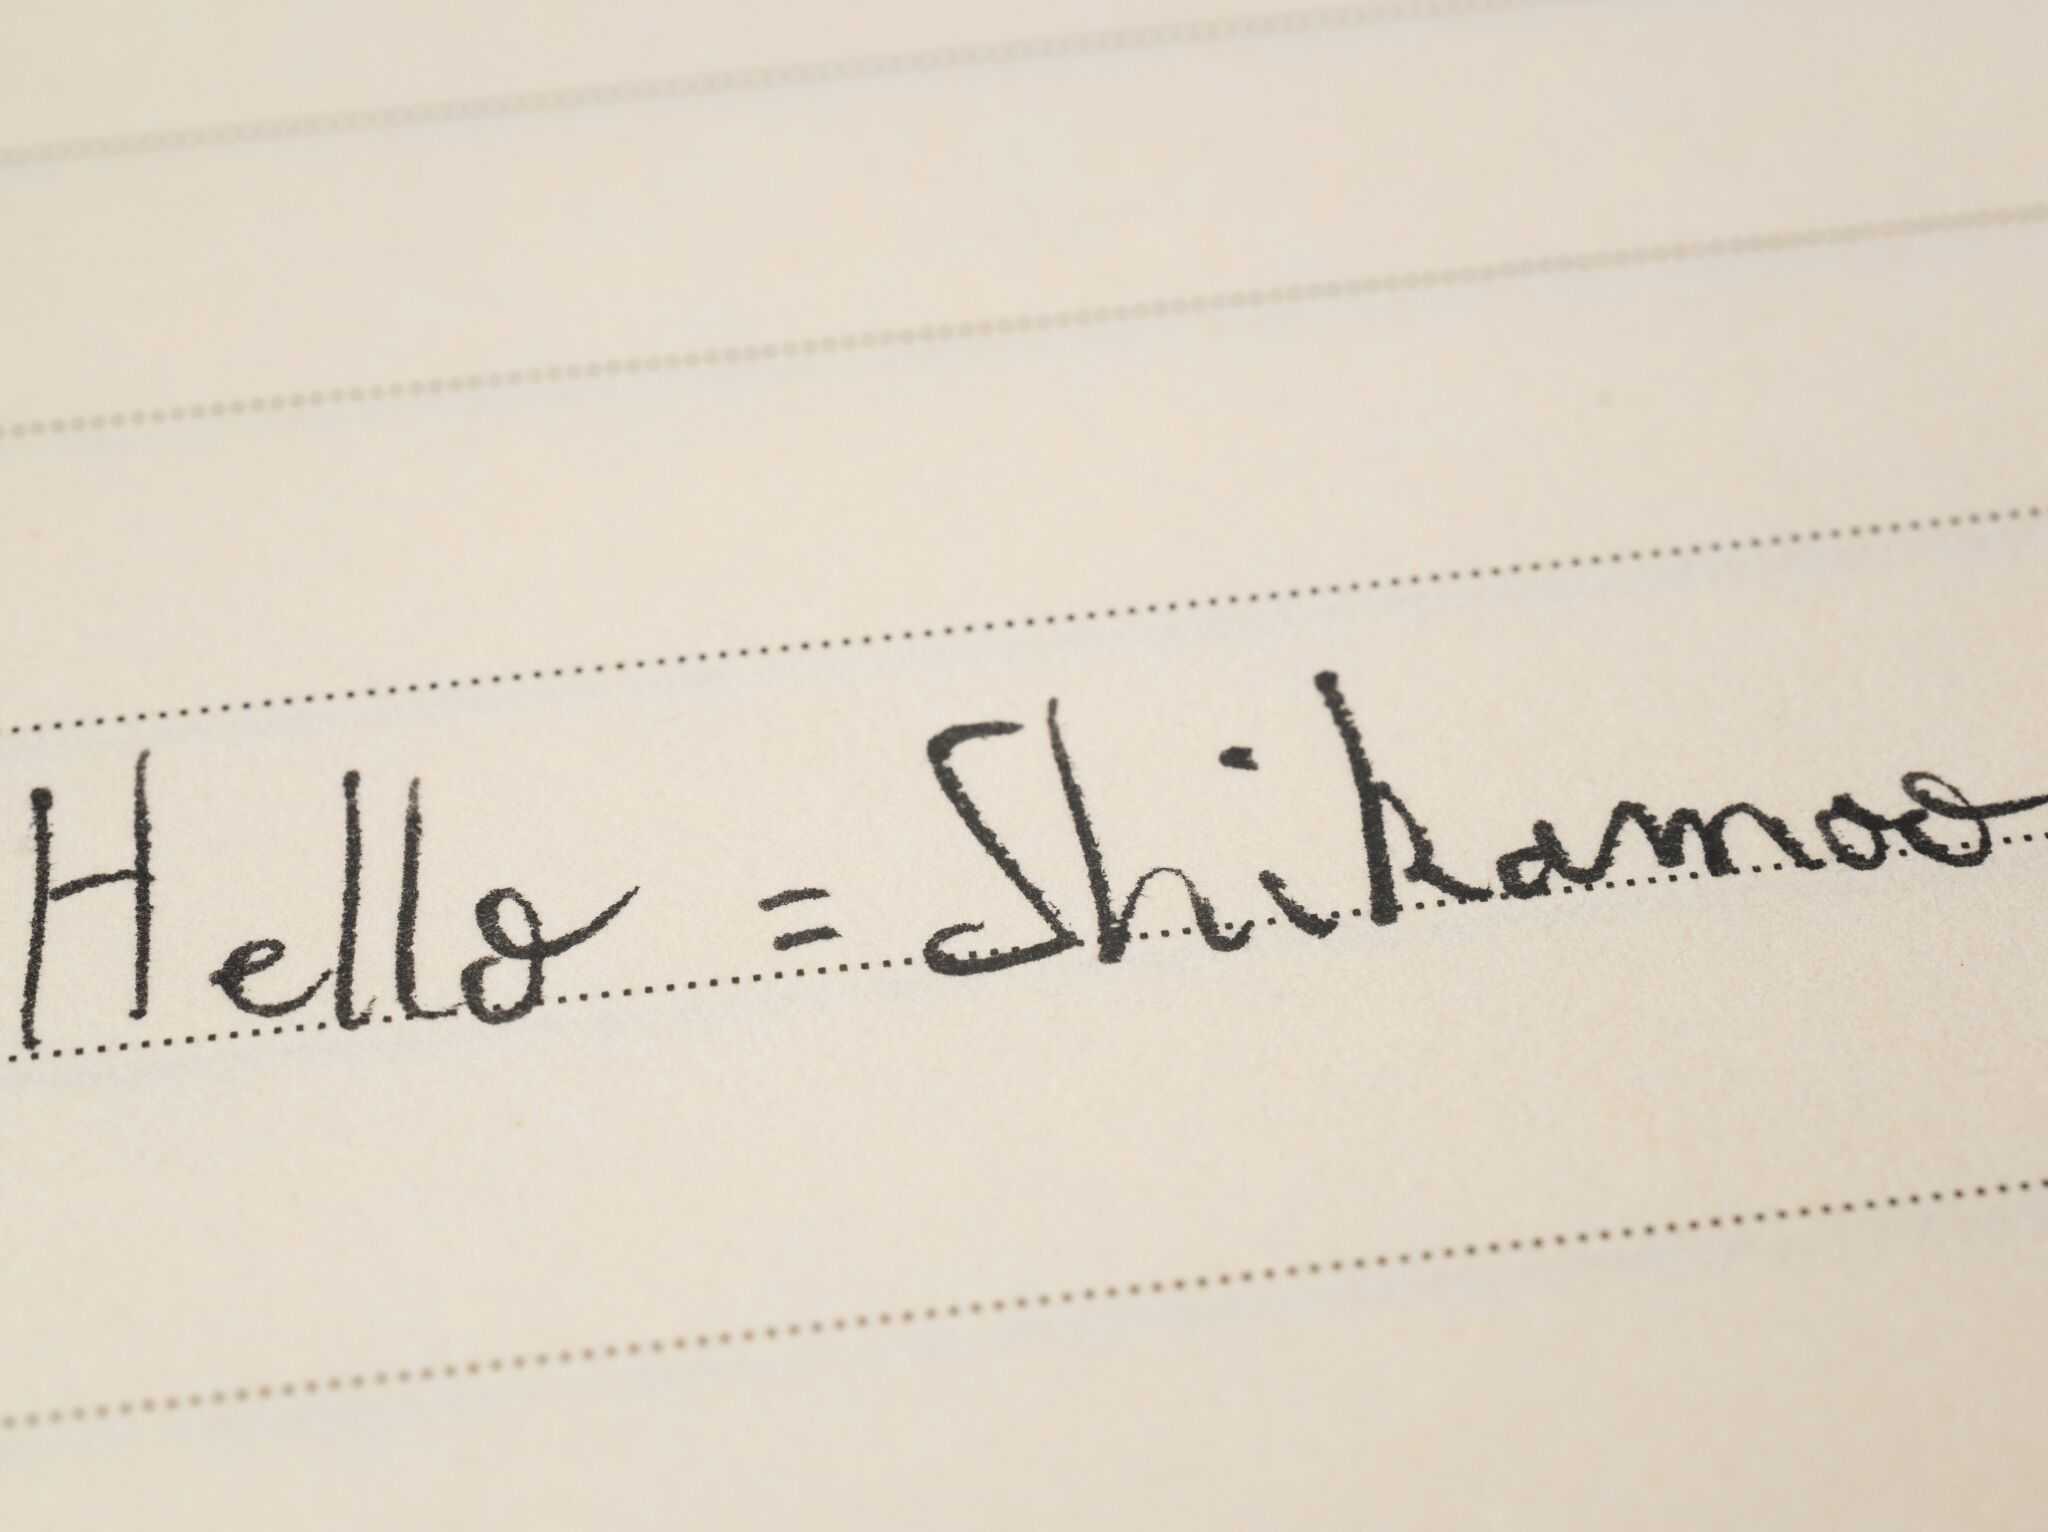 Hello = Shikamoo